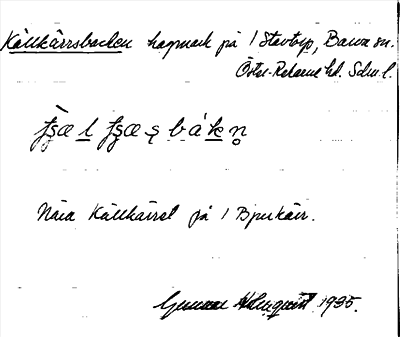 Källkärrsbacken hagmark på 1 Stavtorp, Barva sn.
Öster-Rekarne hd. Södm. l.
Nära Källkärret på 1 Bjurkärr.
Gunnar Holmquist 1935.